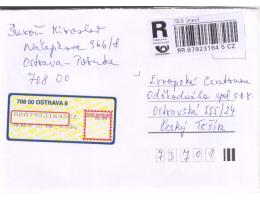 Miroslav
Nálepkova 966/8
Ostrava-Poruba
708 00
R
RR87923164 5 CZ
708 00 OSTRAVA 8
RR87923164 5 CZ
Evropské Centrum
Odškodnění spol. s r.o.
Ostravská 555/24
Český Těšín
73701